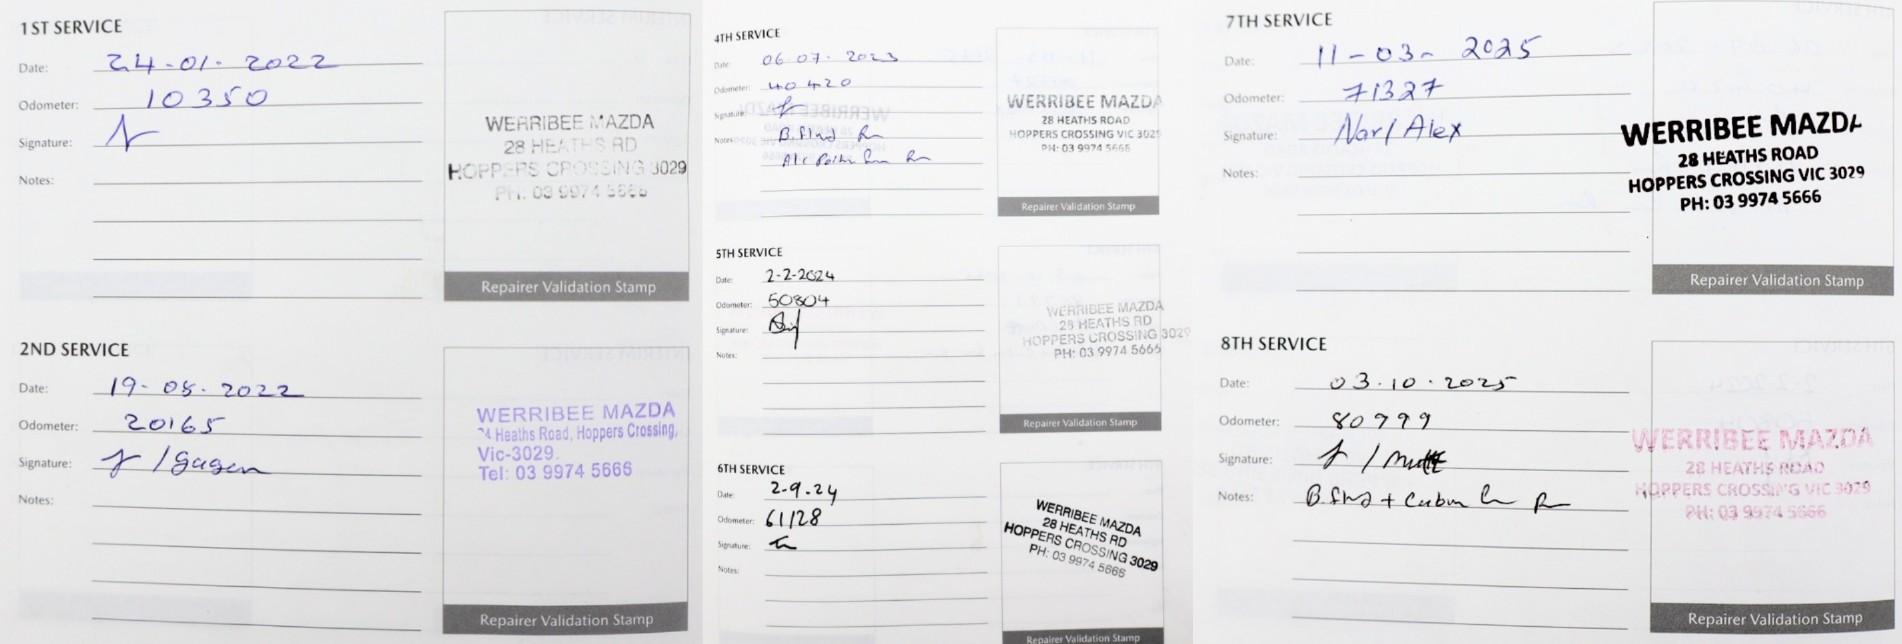 1ST SERVICE
Date: 24-01-2022
Odometer: 10350
Signature:
Notes:
WERRIBEE MAZDA
28 HEATHS RD
HOPPERS CROSSING 3029
PH: 03 9974 5666
Repairer Validation Stamp
2ND SERVICE
Date: 19-08-2022
Odometer: 20165
Signature: /Gagen
Notes:
WERRIBEE MAZDA
24 Heaths Road, Hoppers Crossing,
Vic-3029.
Tel: 03 9974 5666
Repairer Validation Stamp
4TH SERVICE
Date: 06.07.2023
Odometer: 40420
Signature:
Notes:
WERRIBEE MAZDA
28 HEATHS ROAD
HOPPERS CROSSING VIC 3029
PH: 03 9974 5666
Repairer Validation Stamp
5TH SERVICE
Date: 2-2-2024
Odometer: 50804
Signature:
Notes:
WERRIBEE MAZDA
28 HEATHS RD
HOPPERS CROSSING 3029
PH: 03 9974 5666
Repairer Validation Stamp
6TH SERVICE
Date: 2-9-24
Odometer: 61128
Signature:
Notes:
WERRIBEE MAZDA
28 HEATHS RD
HOPPERS CROSSING 3029
PH: 03 9974 5666
Repairer Validation Stamp
7TH SERVICE
Date: 11-03-2025
Odometer: 71327
Signature: Nar/Alex
Notes:
WERRIBEE MAZDA
28 HEATHS ROAD
HOPPERS CROSSING VIC 3029
PH: 03 9974 5666
Repairer Validation Stamp
8TH SERVICE
Date: 03.10.2025
Odometer: 80799
Signature:
Notes:
WERRIBEE MAZDA
28 HEATHS ROAD
HOPPERS CROSSING VIC 3029
PH: 03 9974 5666
Repairer Validation Stamp